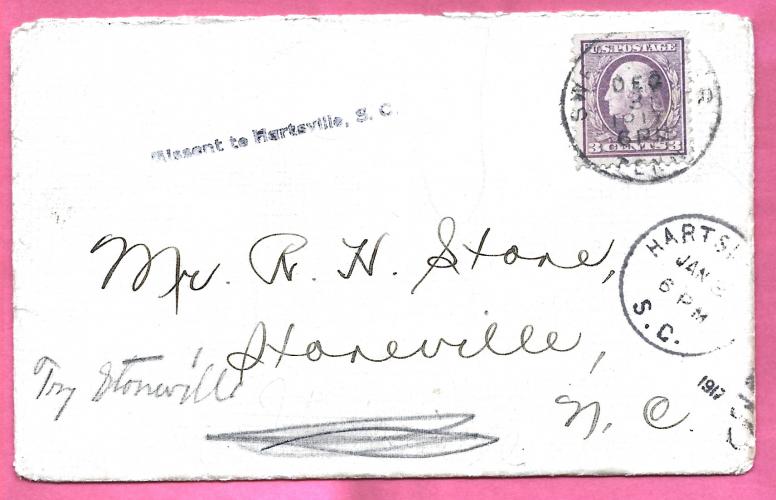 U.S. POSTAGE
3 CENTS 3
DEC
3
1917
6 PM
Missent to Hartsville, S. C.
Mr. R. H. Stone,
Stoneville,
N. C.
Try Stoneville
JAN
6 PM
S. C.
1917